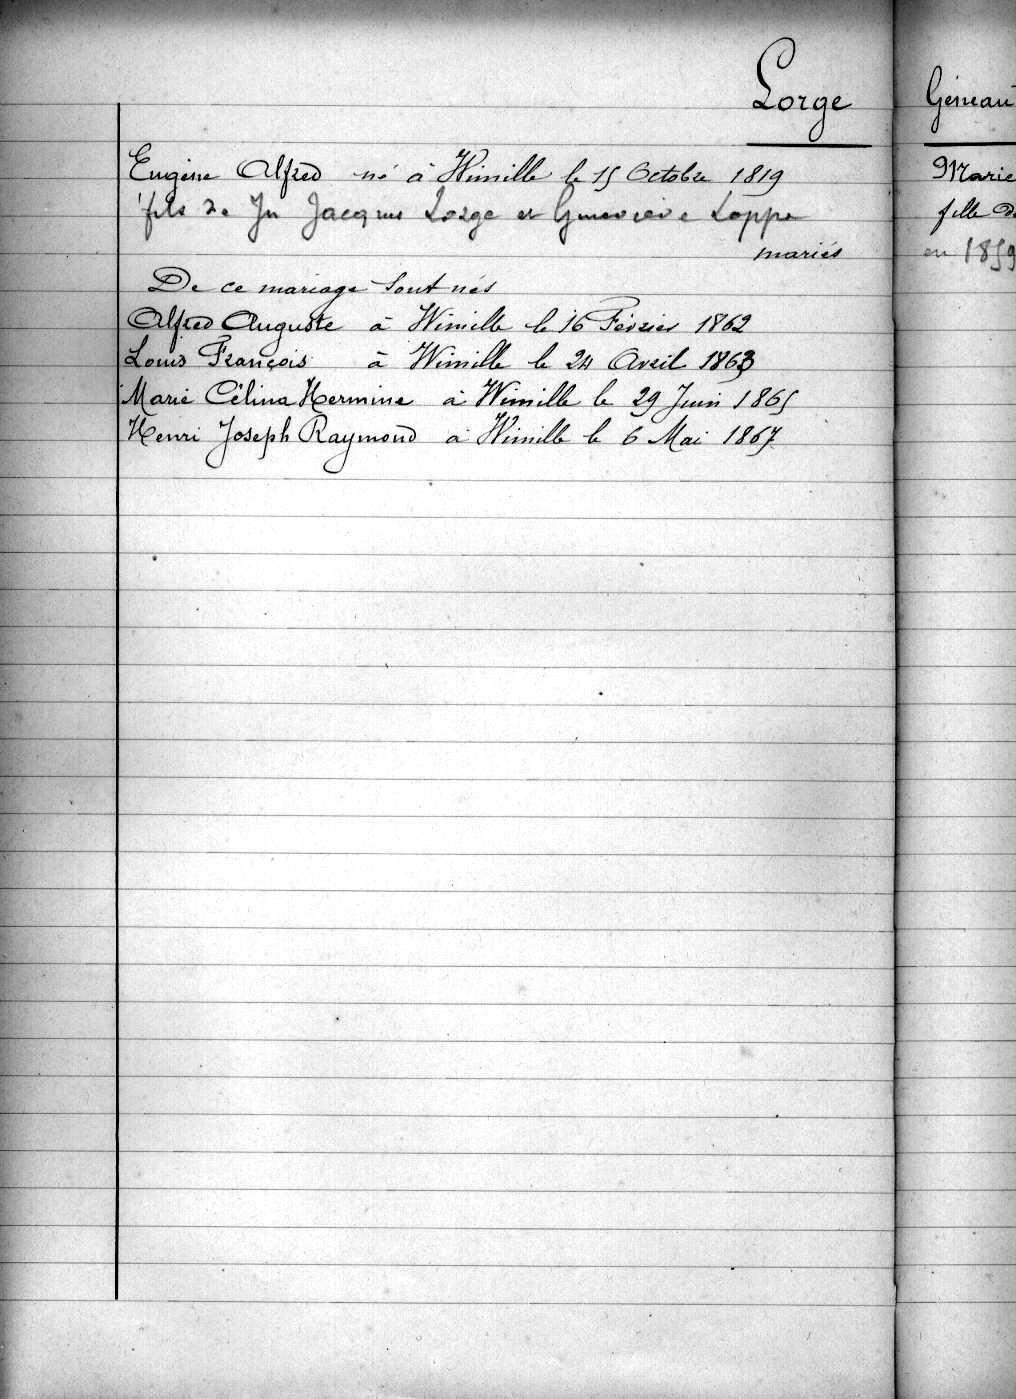 Lorge
Eugène Alfred né à Wimille le 15 Octobre 1819
fils de Jn Jacques Lorge et Geneviève Loppe
mariés
De ce mariage sont nés
Alfred Auguste à Wimille le 16 Février 1862
Louis François à Wimille le 24 Avril 1863
Marie Célina Hermine à Wimille le 29 Juin 1865
Henri Joseph Raymond à Wimille le 6 Mai 1867
Géneau
Marie
fille de
en 1859